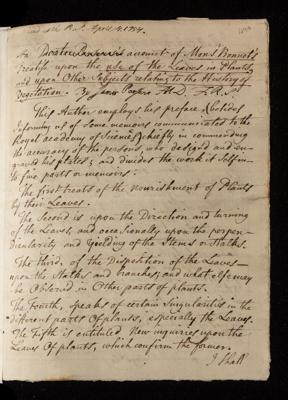 Read at the R.S. April 4. 1754.
An account of Monsr Bonnet's
Treatise upon the use of the Leaves in Plants,
and upon Other Subjects relating to the History of
Vegetation. By James Parsons M.D. F.R.S.
This Author employs his preface (besides
informing us of some memoirs communicated to the
Royal academy of Sciences) chiefly in commending
the accuracy of the persons, who designed and en-
graved his plates; and divides the work itself in-
to five parts or memoirs:
The first treats of the nourishment of Plants
by their Leaves.
The Second is upon the Direction and turning
of the Leaves, and occasionally upon the perpen-
dicularity and yielding of the Stems or Stalks.
The third, of the Disposition of the Leaves
upon the Stalks and branches, and what else may
be Observed in Other parts of plants.
The Fourth, speaks of certain Singularities in the
different parts Of plants, especially the Leaves.
The Fifth is entituled new inquiries upon the
Leaves Of plants, which confirm the former.
I shall